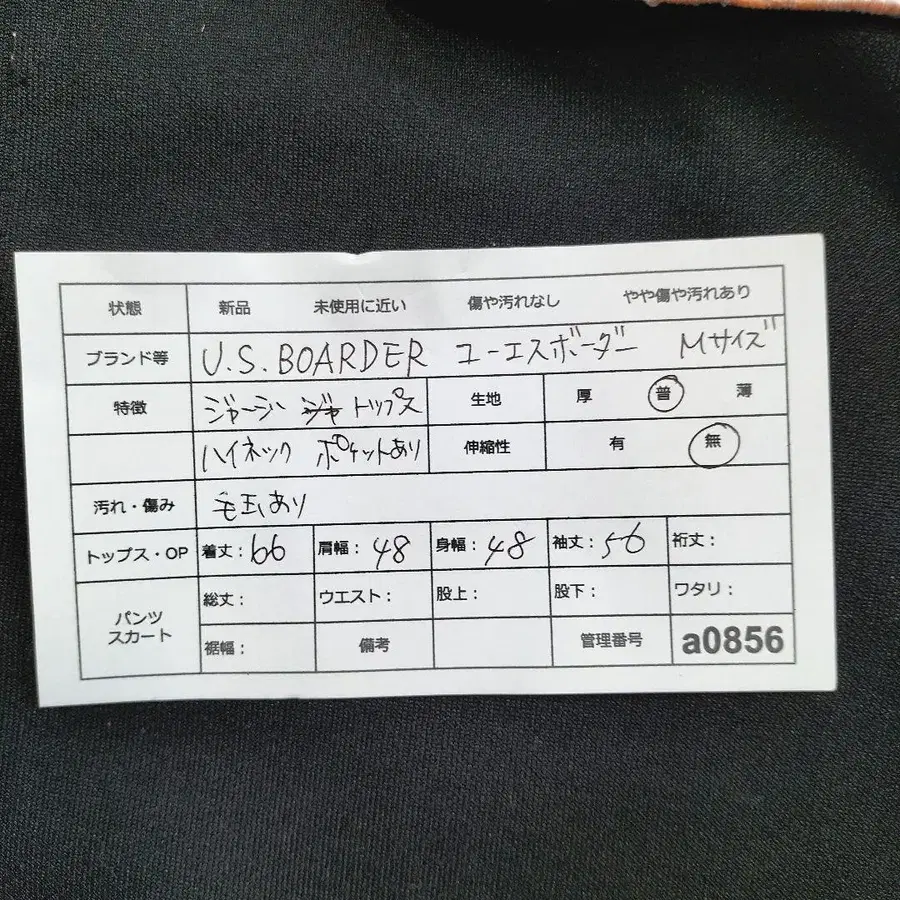 状態 新品 未使用に近い 傷や汚れなし やや傷や汚れあり
ブランド等 U.S.BOARDER ユーエスボーダー Mサイズ
特徴 ジャージ ジャ トップス 生地 厚 普 薄
ハイネック ポケットあり 伸縮性 有 無
汚れ・傷み 毛玉あり
トップス・OP 着丈:66 肩幅:48 身幅:48 袖丈:56 裄丈:
パンツ スカート 総丈: ウエスト: 股上: 股下: ワタリ:
裾幅: 備考 管理番号 a0856